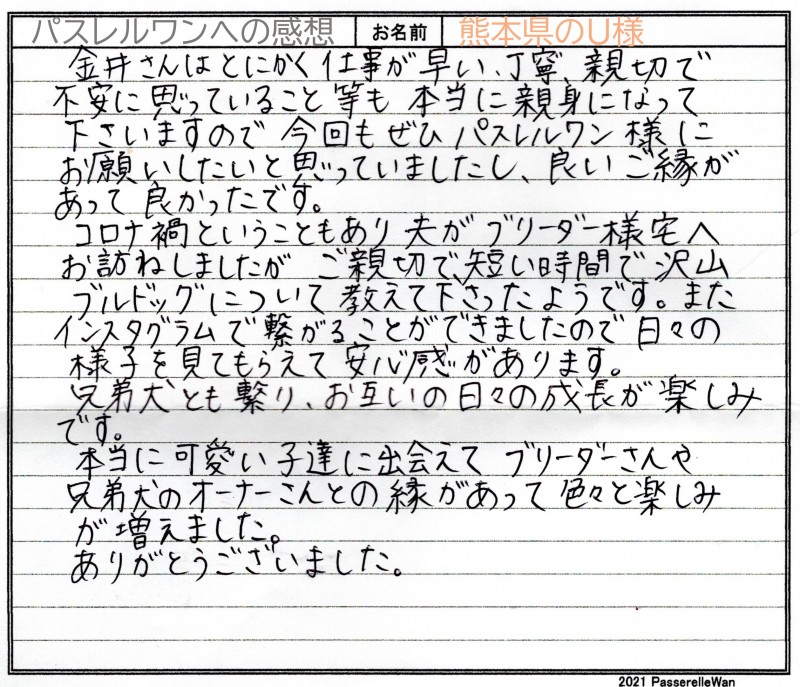 パスレルワンへの感想 お名前 熊本県のU様
金井さんはとにかく仕事が早い、丁寧、親切で
不安に思っていること等も本当に親身になって
下さいますので今回もぜひパスレルワン様に
お願いしたいと思っていましたし、良いご縁が
あって良かったです。
コロナ禍ということもあり夫がブリーダー様宅へ
お訪ねしましたが ご親切で、短い時間で沢山
ブルドッグについて教えて下さったようです。また
インスタグラムで繋がることができましたので日々の
様子を見てもらえて安心感があります。
兄弟犬とも繋り、お互いの日々の成長が楽しみ
です。
本当に可愛い子達に出会えてブリーダーさんや
兄弟犬のオーナーさんとの縁があって色々と楽しみ
が増えました。
ありがとうございました。
2021 PasserelleWan